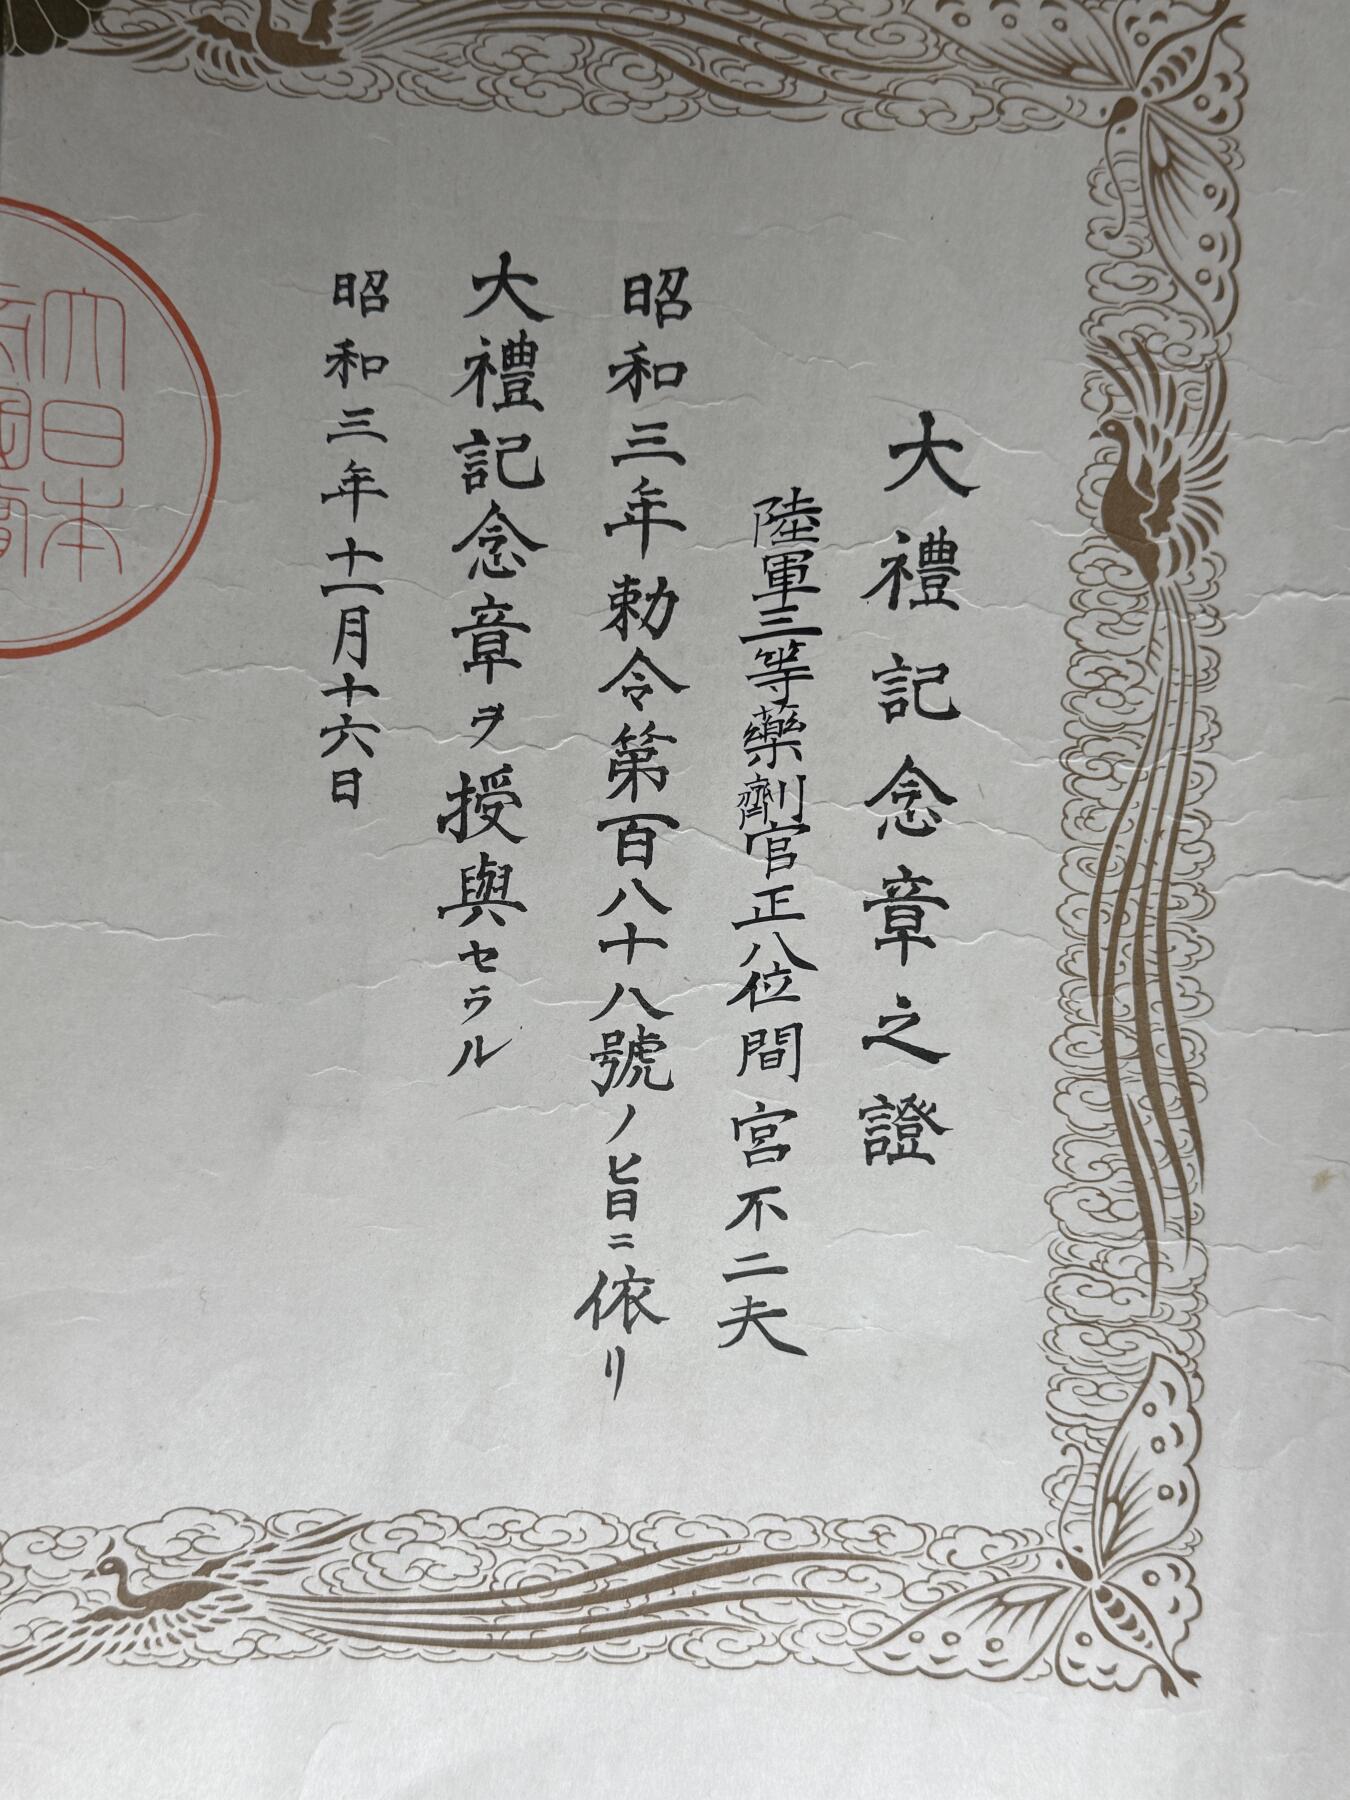 大禮記念章之證
陸軍三等藥劑官正八位間宮不二夫
昭和三年勅令第百八十八號ノ旨ニ依リ
大禮記念章ヲ授與セラル
昭和三年十一月十六日
大日本